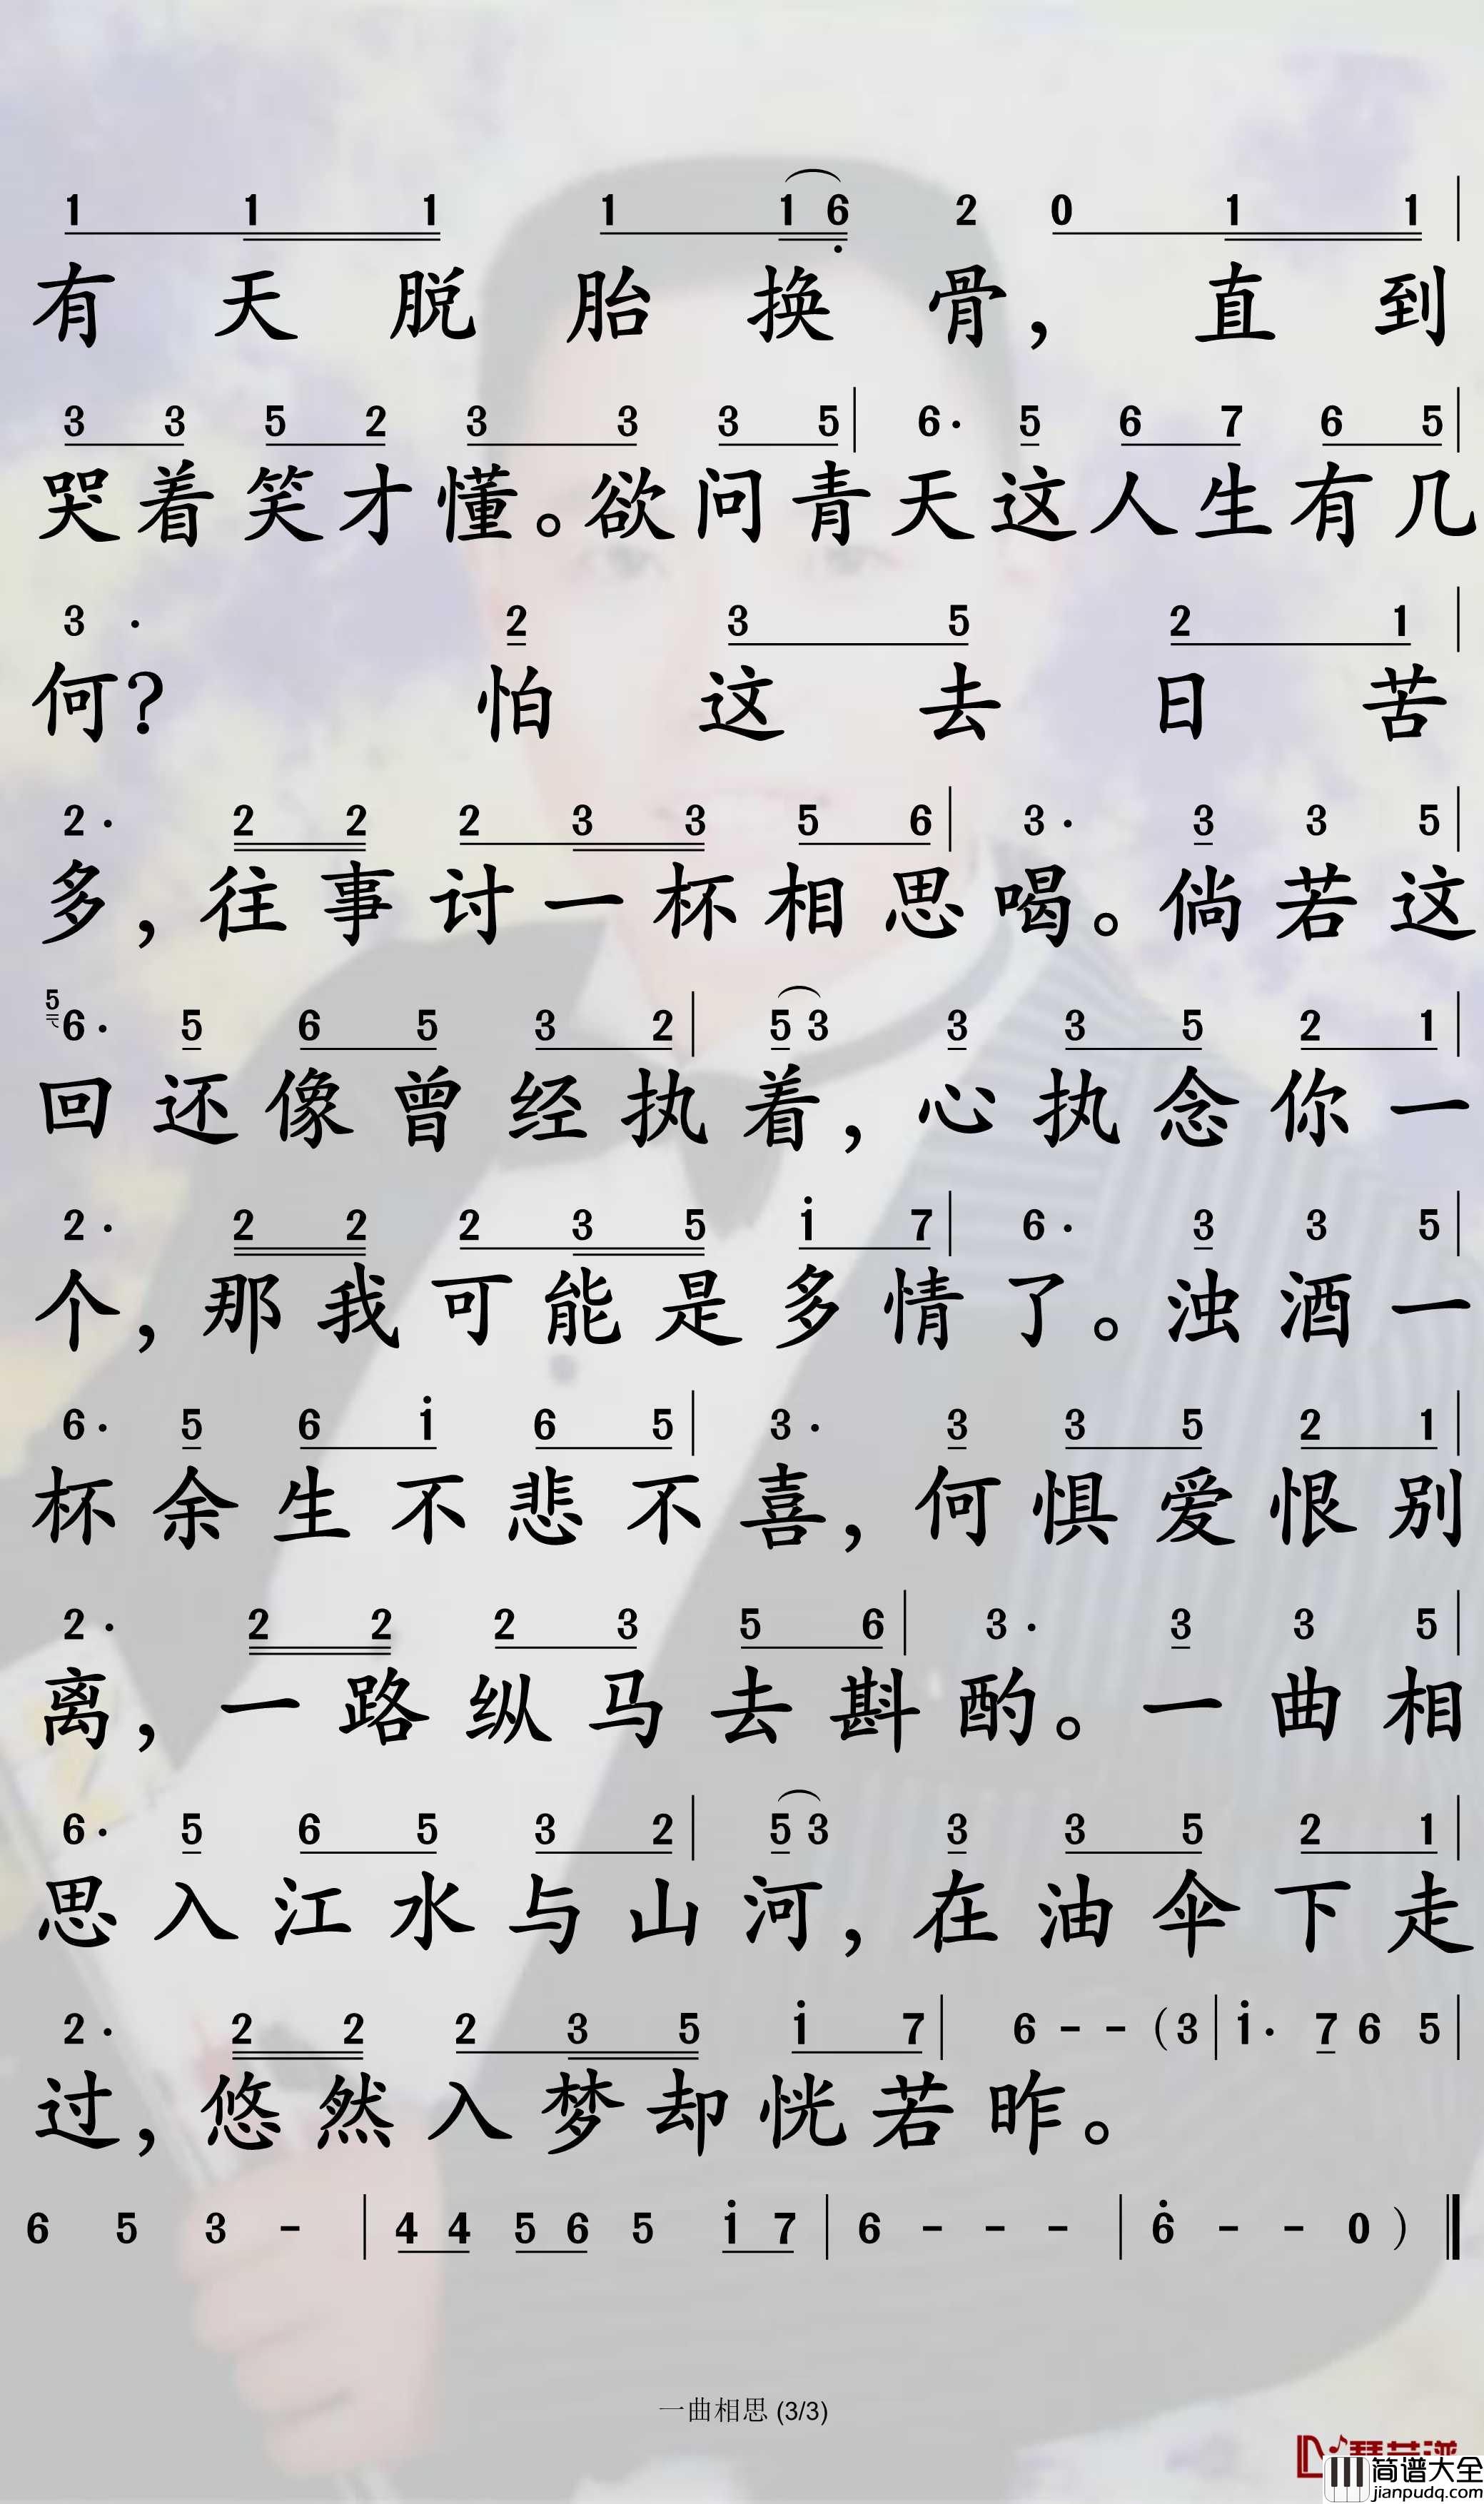 1 1 1 1 1 6 2 0 1 1
有天脱胎换骨，直到
3 3 5 2 3 3 3 5 | 6· 5 6 7 6 5 |
哭着笑才懂。欲问青天这人生有几
3 · 2 3 5 2 1 |
何？怕这去日苦
2· 2 2 2 3 3 5 6 | 3· 3 3 5 |
多，往事讨一杯相思喝。倘若这
5 6· 5 6 5 3 2 | 5 3 3 3 5 2 1 |
回还像曾经执着，心执念你一
2· 2 2 2 3 5 i 7 | 6· 3 3 5 |
个，那我可能是多情了。浊酒一
6· 5 6 i 6 5 | 3· 3 3 5 2 1 |
杯余生不悲不喜，何惧爱恨别
2· 2 2 2 3 5 6 | 3· 3 3 5 |
离，一路纵马去斟酌。一曲相
6· 5 6 5 3 2 | 5 3 3 3 5 2 1 |
思入江水与山河，在油伞下走
2· 2 2 2 3 5 i 7 | 6 - - （3 | i· 7 6 5 |
过，悠然入梦却恍若昨。
6 5 3 - | 4 4 5 6 5 i 7 | 6 - - - | 6 - - 0 ）
一曲相思 (3/3)
简谱大全
jianpudq.com